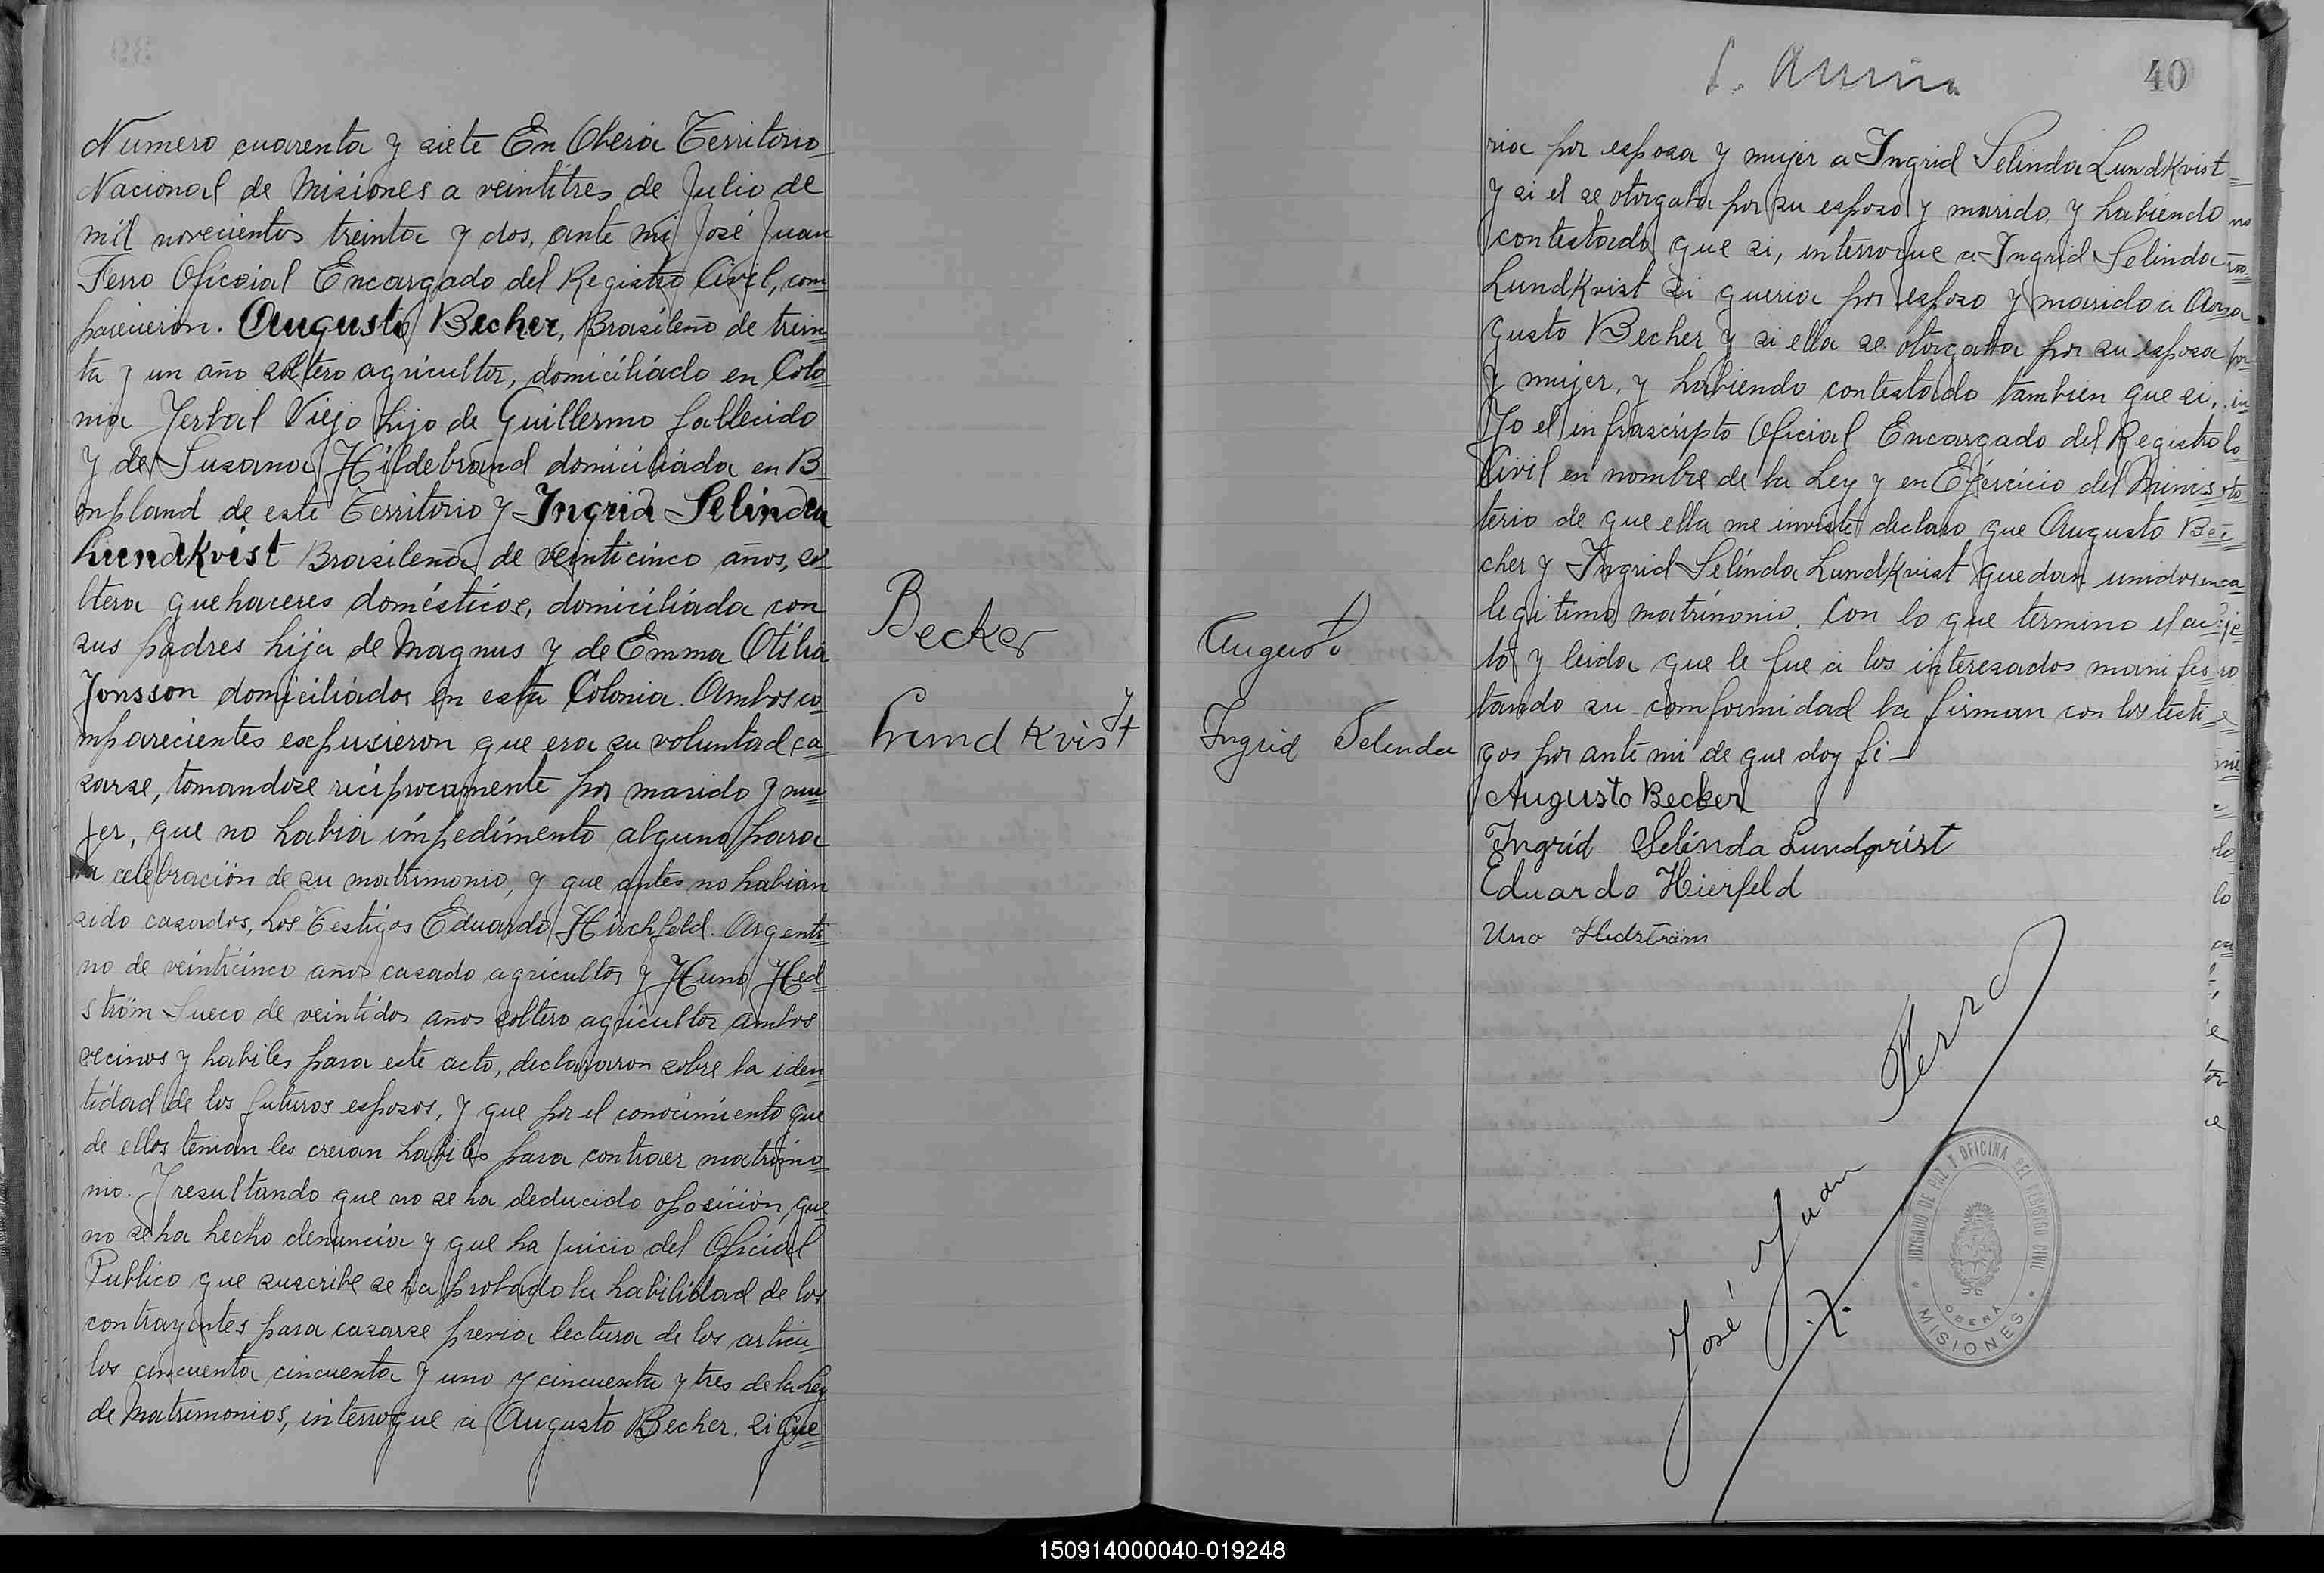 Numero cuarenta y siete En Oberá Territorio
Nacional de Misiones a veintitres de Julio de
mil novecientos treinta y dos, ante mi José Juan
Ferro Oficcial Encargado del Registro Civil, com
parecieron. Augusto Becher, Brasileño de trein
ta y un año soltero agricultor, domiciliádo en Colo
nia Yerbal Viejo hijo de Guillermo fallecido
y de Susana Hildebrand domiciliáda en B
onpland de este Territorio y Ingrid Selinda
Lundkvist Brasileña de veinticinco años, so
ltera quehaceres domésticos, domiciliáda con
sus padres hija de Magnus y de Emma Otilia
Jonsson domiciliádos en esta Colonia. Ambos co
mparecientes expusieron que era su voluntad ca
sarse, tomandose recíprocamente por marido y mu
jer, que no habia impedimento alguno para
la celebración de su matrimonio, y que antes no habian
sido casados, Los Testigos Eduardo Hirchfeld. Argenti
no de veinticinco años casado agricultor y Huno Hed
ström Sueco de veintidos años soltero agricultor ambos
vecinos y habiles para este acto, declararon sobre la iden
tidad de los futuros esposos, y que por el conocimiento que
de ellos tenian les creian habiles para contraer matrimo
nio. Y resultando que no se ha deducido oposición, que
no se ha hecho denuncia y que ha juicio del Oficial
Publico que suscribe se ha probado la habilidad de los
contrayentes para casarse previa lectura de los articu
los cincuenta cincuenta y uno y cincuenta y tres de la Ley
de Matrimonios, interrogue á Augusto Becher. si que
Becker
Lundkvist
y
Augusto
Ingrid Selinda
40
ria por esposa y mujer a Ingrid Selinda Lundkvist
y si el se otorgaba por su esposo y marido y habiendo
contestado que si, interrogue a Ingrid Selinda
Lundkvist si queria por esposo y marido á Au
gusto Becher y si ella se otorgaba por su esposa
y mujer, y habiendo contestado tambien que si,
Yo el infrascripto Oficial Encargado del Registro
Civil en nombre de la Ley y en Ejercicio del Minis
terio de que ella me inviste declaro que Augusto Be
cher y Ingrid Selinda Lundkvist quedan unidos en
legitimo matrimonio. Con lo que termino el ac
to y leida que le fue á los interesados manifes
tando su comformidad la firman con los testi
gos por ante mi de que doy fé
Augusto Becker
Ingrid Selinda Lundqvist
Eduardo Hierfeld
Uno Hedström
José Juan Ferro
JUZGADO DE PAZ Y OFICINA DEL REGISTRO CIVIL
OBERÁ
MISIONES
150914000040-019248